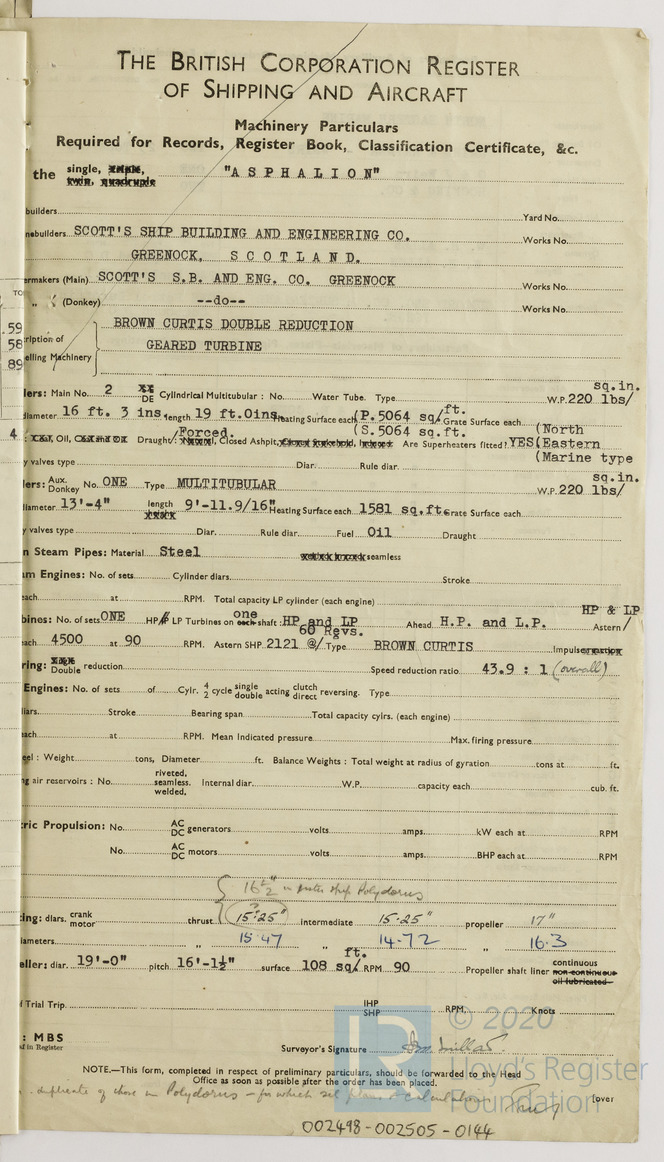 THE BRITISH CORPORATION REGISTER
OF SHIPPING AND AIRCRAFT
Machinery Particulars
Required for Records, Register Book, Classification Certificate, &c.
the single, triple, twin, quadruple "ASPHALION"
builders Yard No.
nebuilders SCOTT'S SHIP BUILDING AND ENGINEERING CO. Works No.
GREENOCK, SCOTLAND.
ermakers (Main) SCOTT'S S.B. AND ENG. CO. GREENOCK Works No.
TO
" (Donkey) --do-- Works No.
.59 BROWN CURTIS DOUBLE REDUCTION
58 ription of GEARED TURBINE
89 elling Machinery
sq.in.
lers: Main No. 2 DE Cylindrical Multitubular : No. Water Tube. Type W.P. 220 lbs/
diameter 16 ft. 3 ins. length 19 ft.0ins. Heating Surface each (P.5064 sq/ft. Grate Surface each
Forced. (S.5064 sq.ft. (North
4 Oil, Draught: Closed Ashpit, Are Superheaters fitted? YES (Eastern
y valves type Diar. Rule diar. (Marine type
sq.in.
lers: Aux. Donkey No. ONE Type MULTITUBULAR W.P. 220 lbs/
diameter 13'-4" length 9'-11.9/16" Heating Surface each 1581 sq.ft. Grate Surface each
y valves type Diar. Rule diar. Fuel Oil Draught
n Steam Pipes: Material Steel seamless
am Engines: No. of sets Cylinder diars. Stroke
each at RPM. Total capacity LP cylinder (each engine)
HP & LP
bines: No. of sets ONE HP LP Turbines on one each shaft : HP and LP Ahead H.P. and L.P. Astern /
60 Revs.
each 4500 at 90 RPM. Astern SHP 2121 @/ Type BROWN CURTIS Impulse
ring: Double reduction Speed reduction ratio 43.9 : 1 (overall)
Engines: No. of sets of Cylr. 4 2 cycle single double acting clutch direct reversing. Type
iars. Stroke Bearing span Total capacity cylrs. (each engine)
each at RPM. Mean Indicated pressure Max. firing pressure
eel : Weight tons, Diameter ft. Balance Weights : Total weight at radius of gyration tons at ft.
ng air reservoirs : No. riveted, seamless. welded, Internal diar. W.P. capacity each cub. ft.
ric Propulsion: No. AC DC generators volts amps. kW each at RPM
No. AC DC motors volts amps. BHP each at RPM
16 1/2" in sister ship Polydorus
ting: diars. crank motor thrust 15.25" intermediate 15.25" propeller 17"
iameters " 15.47 " 14.72 " 16.3
eller: diar. 19'-0" pitch 16'-1½" surface 108 sq/ft. RPM 90 Propeller shaft liner continuous non-continuous oil lubricated
f Trial Trip IHP SHP RPM. Knots
: MBS
d in Register
Surveyor's Signature
NOTE.—This form, completed in respect of preliminary particulars, should be forwarded to the Head
Office as soon as possible after the order has been placed.
duplicate of those in Polydorus — for which see plans & calculations
[over
002498-002505-0144
© 2020
Lloyd's Register
Foundation